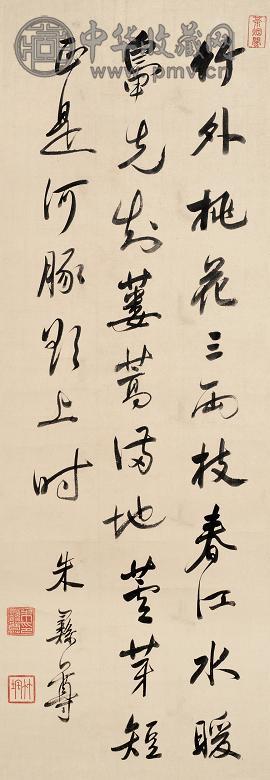 中华收藏网
www.pmv.cn
竹外桃花三兩枝春江水暖
鳧先知蔞蒿滿地蘆芽短
正是河豚欲上時
朱彝尊